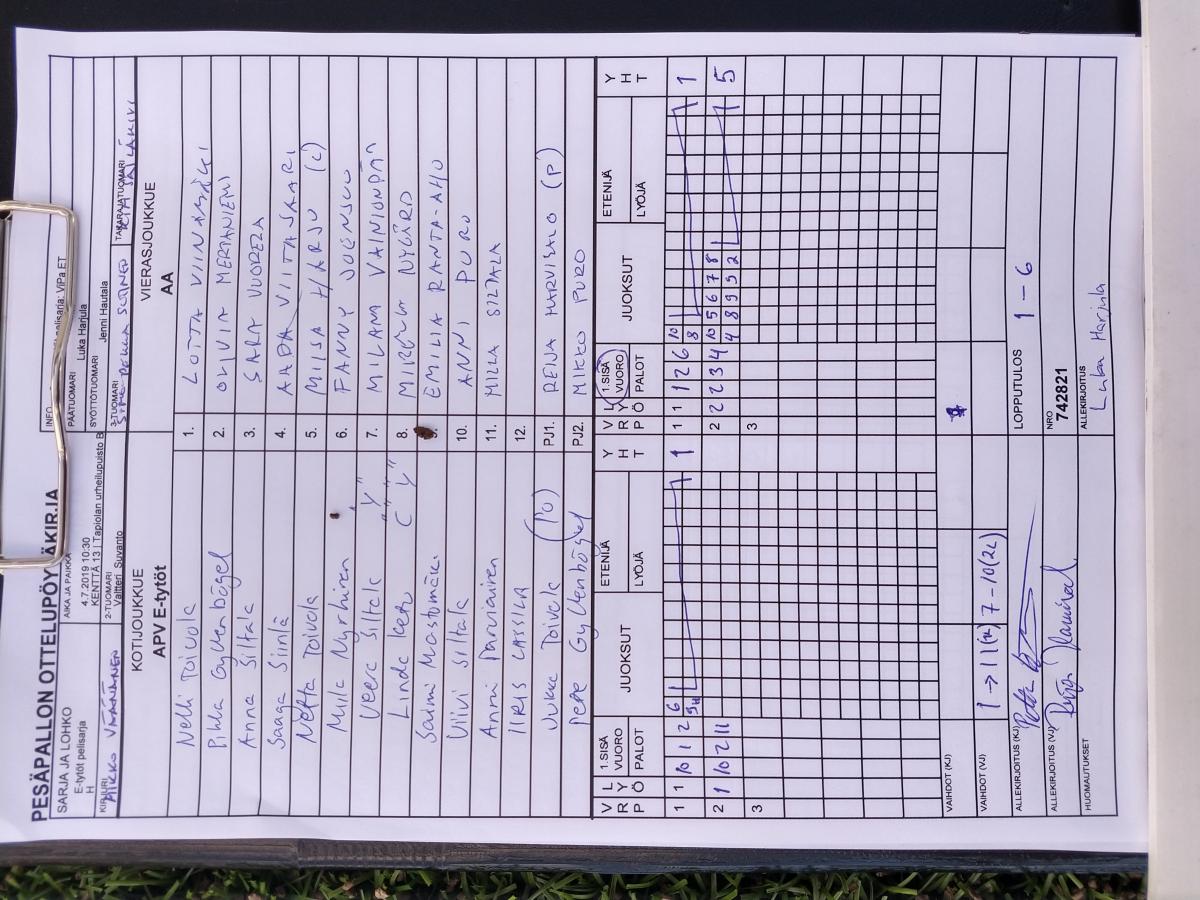 PESÄPALLON OTTELUPÖYTÄKIRJA
SARJA JA LOHKO
E-tytöt pelisarja
H
AIKA JA PAIKKA
4.7.2019 10:30
KENTTÄ 13 | Tapiolan urheilupuisto B
INFO
pelisarja: ViPa ET
PÄÄTUOMARI
Luka Harjula
SYÖTTÖTUOMARI
Jenni Hautala
KIRJURI
MIKKO VÄÄNÄNEN
2-TUOMARI
Valtteri Suvanto
3-TUOMARI
TAKARAJATUOMARI
KOTIJOUKKUE
APV E-tytöt
VIERASJOUKKUE
AA
Nelli Toivola 1. LOTTA VIINAMÄKI
Pihla Gyllenbögel 2. OLIVIA MERTANIEMI
Anna Siltala 3. SARA VUORELA
Saaga Sirrilä 4. AADA VIITASAARI
Netta Toivola 5. MIISA HARJU (C)
Milla Myrhinen 6. FANNY JOENSUU
Veera Siltala "Y" 7. MILANA VAINIONPÄÄ
Linda Keto C "Y" 8. NYGÅRD
Saimi Mastomäki 9. EMILIA RANTA-AHO
Viivi Siltala 10. ANNI PURO
Anni Parviainen 11. MILLA SIPALA
IIRIS LASSILA 12.
Jukka Toivola (PO) PJ1. REIJA HARVISALO (P)
Pepe Gyllenbögel PJ2. MIKKO PURO
V L
R Y
P Ö
1.SISÄ
VUORO
PALOT
JUOKSUT
ETENIJÄ
LYÖJÄ
Y
H
T
V L
R Y
P Ö
1.SISÄ
VUORO
PALOT
JUOKSUT
ETENIJÄ
LYÖJÄ
Y
H
T
1 1 10 1 2 6 1
1 1 1 2 6 10 8 1
2 1 10 2 11
2 2 2 3 4 10 5 6 7 8 1 5
4 8 9 9 2
3
3
VAIHDOT (KJ)
VAIHDOT (VJ)
ALLEKIRJOITUS (KJ)
ALLEKIRJOITUS (VJ)
LOPPUTULOS 1 - 6
NRO
742821
HUOMAUTUKSET
ALLEKIRJOITUS
Luka Harjula